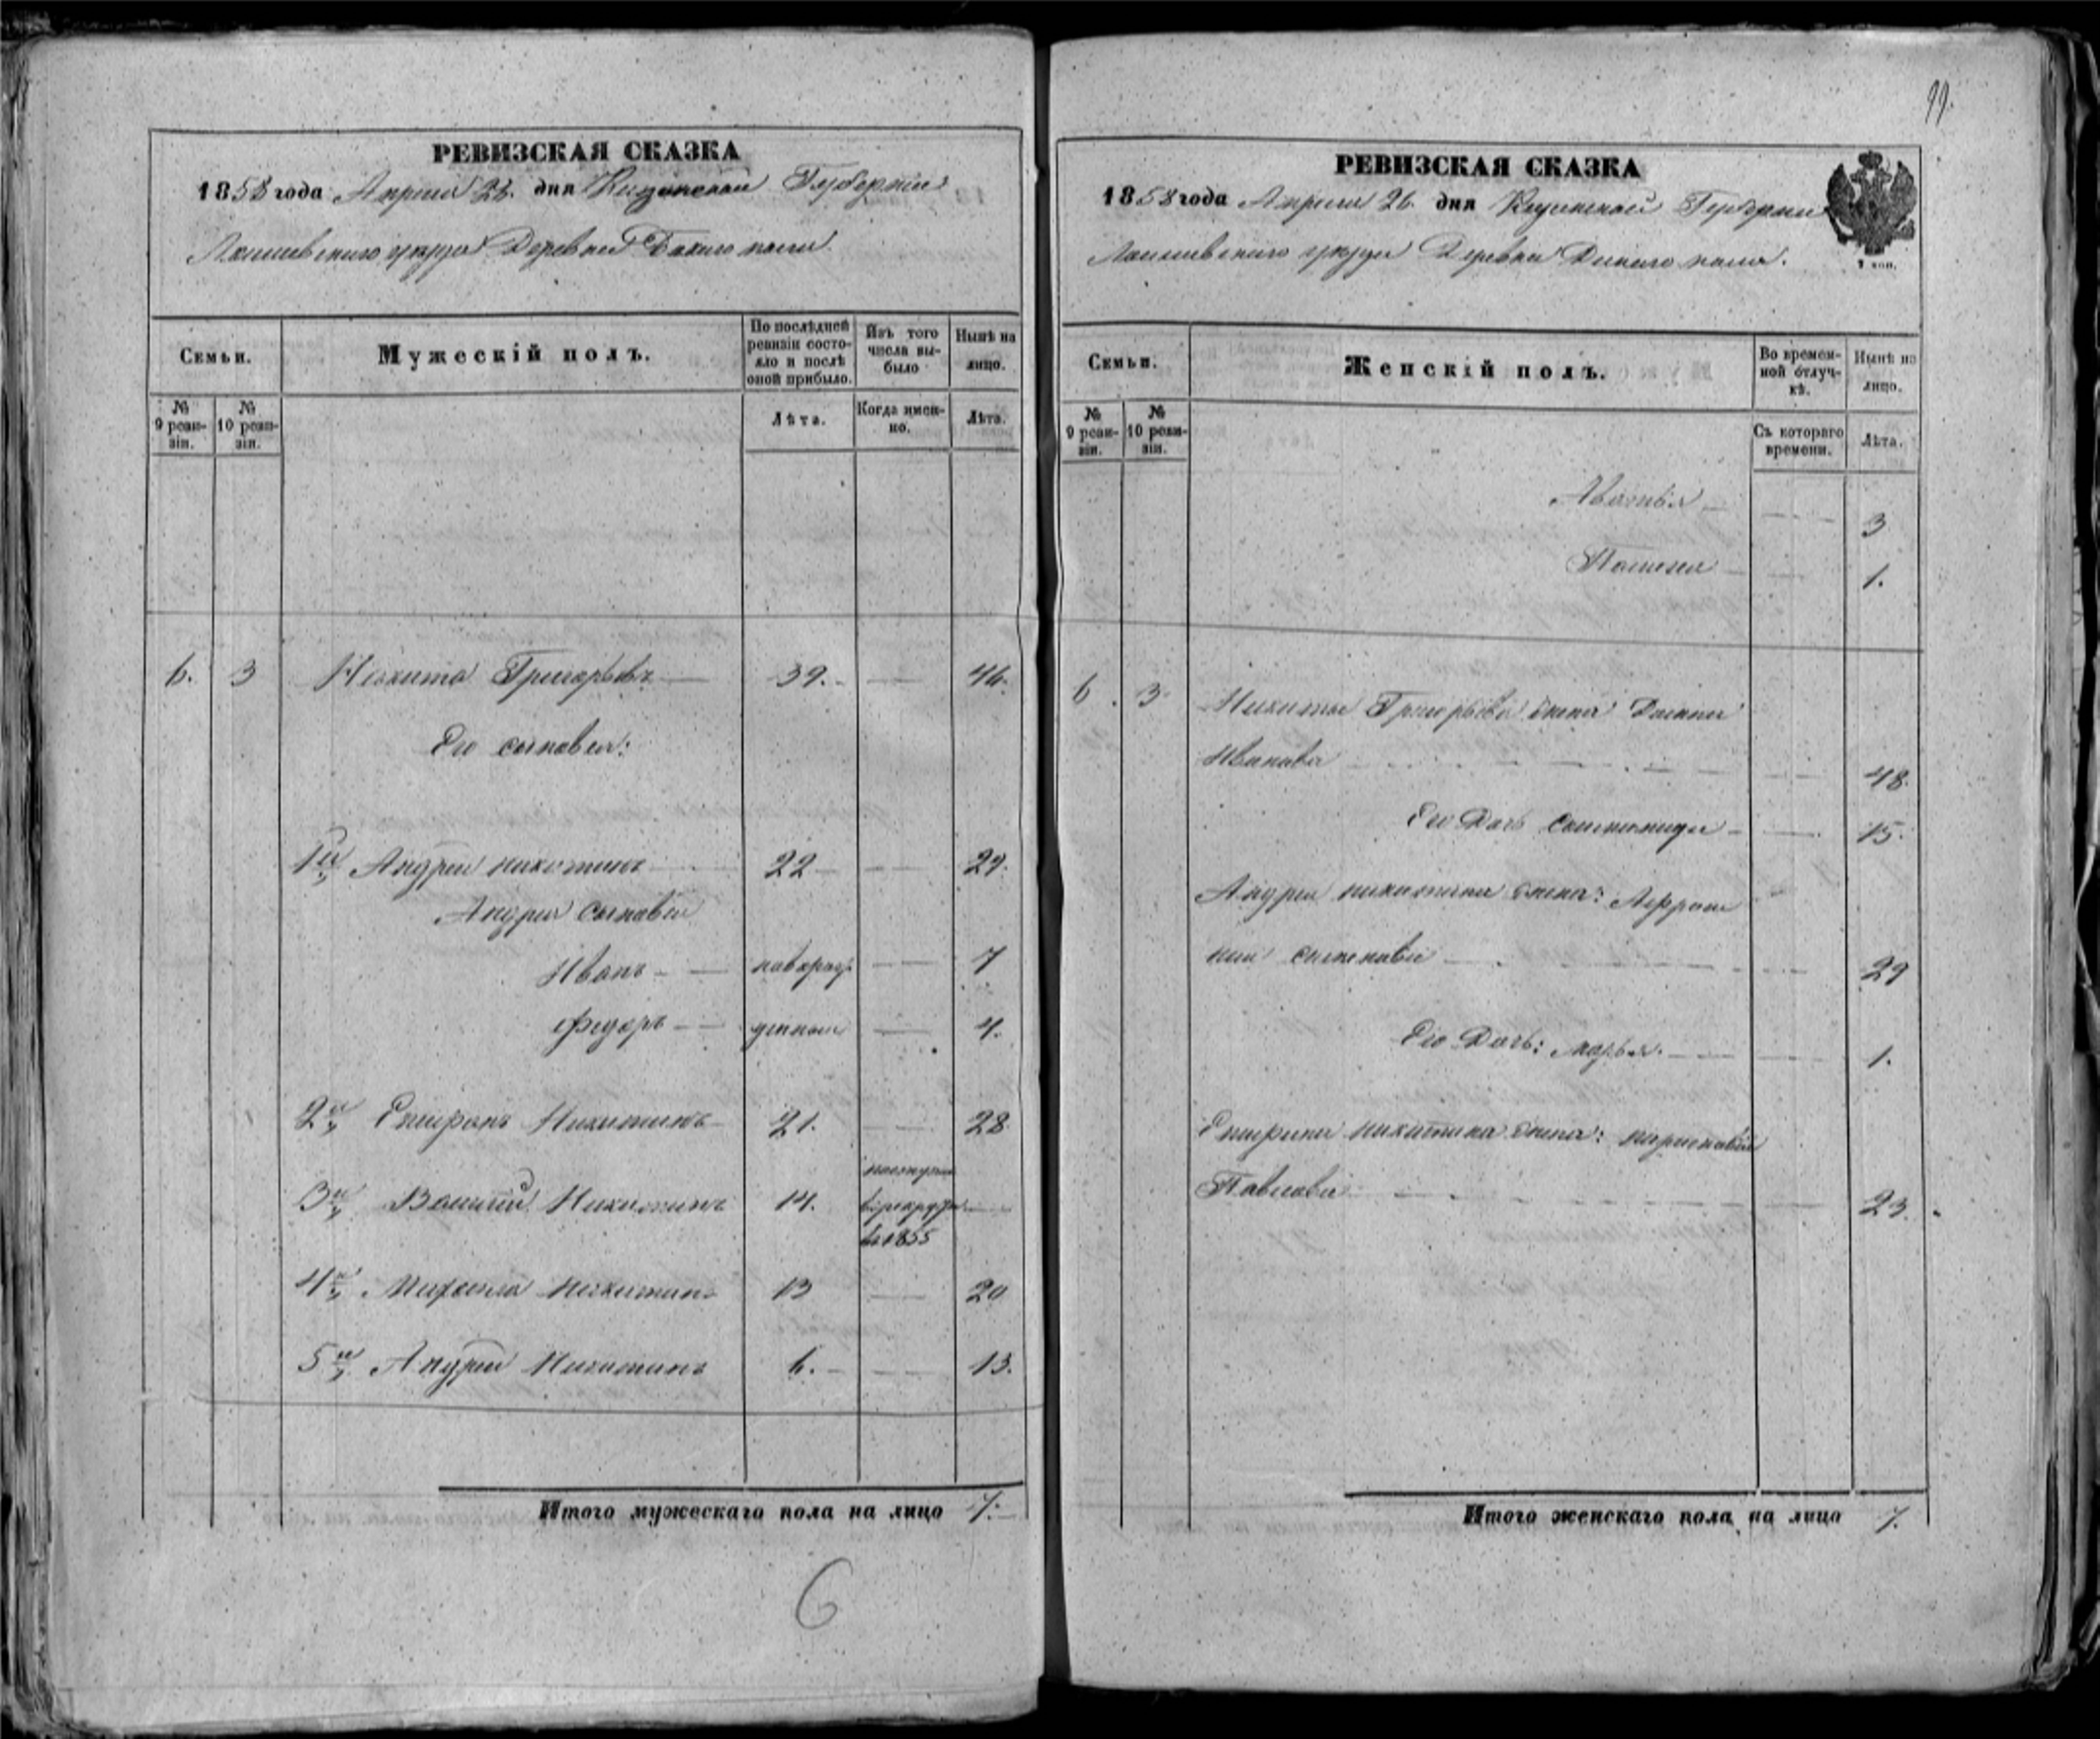 РЕВИЗСКАЯ СКАЗКА
1858 года Апреля 26. дня Казанской Губернии
Лаишевского уезда Деревни поля.
Семьи.
Мужескій полъ.
По послѣдней ревизіи состояло и послѣ оной прибыло.
Изъ того числа выбыло
Нынѣ на лицо.
№ 9 ревизіи.
№ 10 ревизіи.
Лѣта.
Когда именно.
Лѣта.
6. 3 Никита Григорьевъ 39. 46.
Его сыновья:
1й Андрей никитинъ 22 29.
Андрея сыновья
Иванъ новорож 7
Федоръ денные 4.
2й Спиридонъ Никитинъ 21. 28
поступилъ
3й Василий Никитинъ 14. в рекруты
в 1855
4й Михайла Никитинъ 13 20
5й Андрей Никитинъ 6. 13.
Итого мужескаго пола на лицо 7.
6
99.
РЕВИЗСКАЯ СКАЗКА
1858 года Апреля 26. дня Казанской Губернии
Лаишевского уезда Деревни поля.
Семьи.
Женскій полъ.
Во временной отлучкѣ.
Нынѣ на лицо.
№ 9 ревизіи.
№ 10 ревизіи.
Съ котораго времени.
Лѣта.
3
1.
6. 3. Никиты Григорьева жена
Иванова 48.
Его Дочь 15.
Андрея никитина жена: Афрось
нья 29
Его Дочь: марья. 1.
никитина жена:
Павлова 23.
Итого женскаго пола на лицо 7.